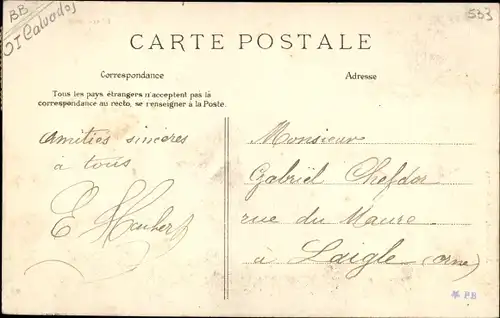 BB
OI Calvados
533
CARTE POSTALE
Correspondance
Adresse
Tous les pays étrangers n'acceptent pas la
correspondance au recto, se renseigner à la Poste.
Amitiés sincères
à tous
E
Monsieur
Gabriel Chefdor
rue du Maure
à Laigle (Orne)
PB